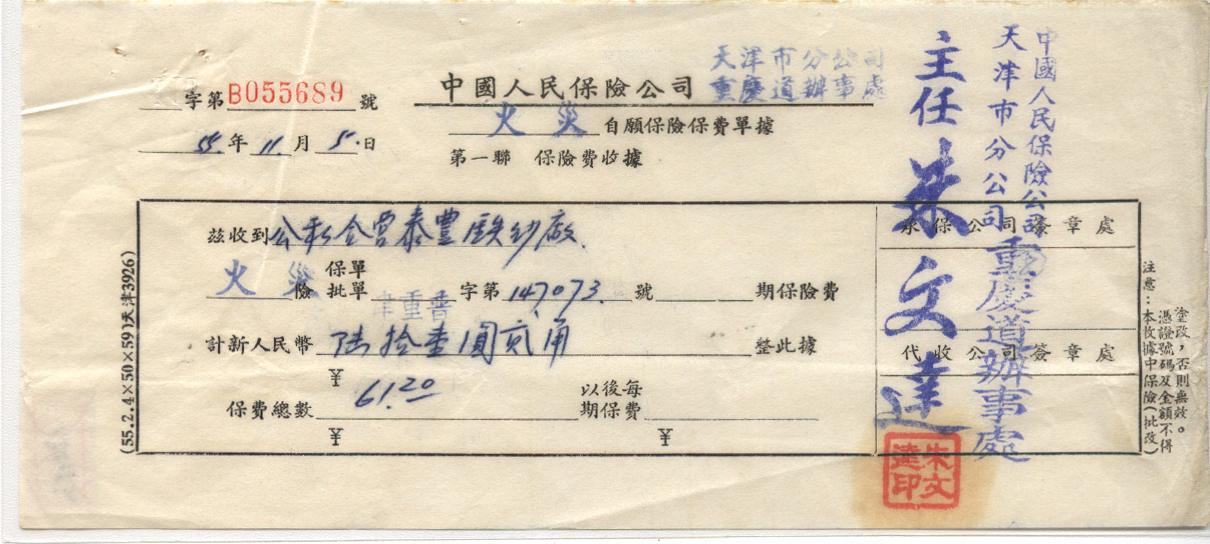 字第B055689號
55年11月5日
中國人民保險公司
天津市分公司
重慶道辦事處
火災自願保險保費單據
第一聯 保險費收據
中國人民保險公司
天津市分公司
重慶道辦事處
主任朱文達
茲收到公私合營泰豐
火災險
保單
批單
字第147073號
期保險費
計新人民幣陸拾壹圓貳角整此據
¥
61.20
保費總數
以後每
期保費
¥
¥
承保公司簽章處
代收公司簽章處
朱文達印
(55.2.4×50×59)天津3926)
注意:本收據中保險(批改)
憑證號碼及金額不得
塗改,否則無效。